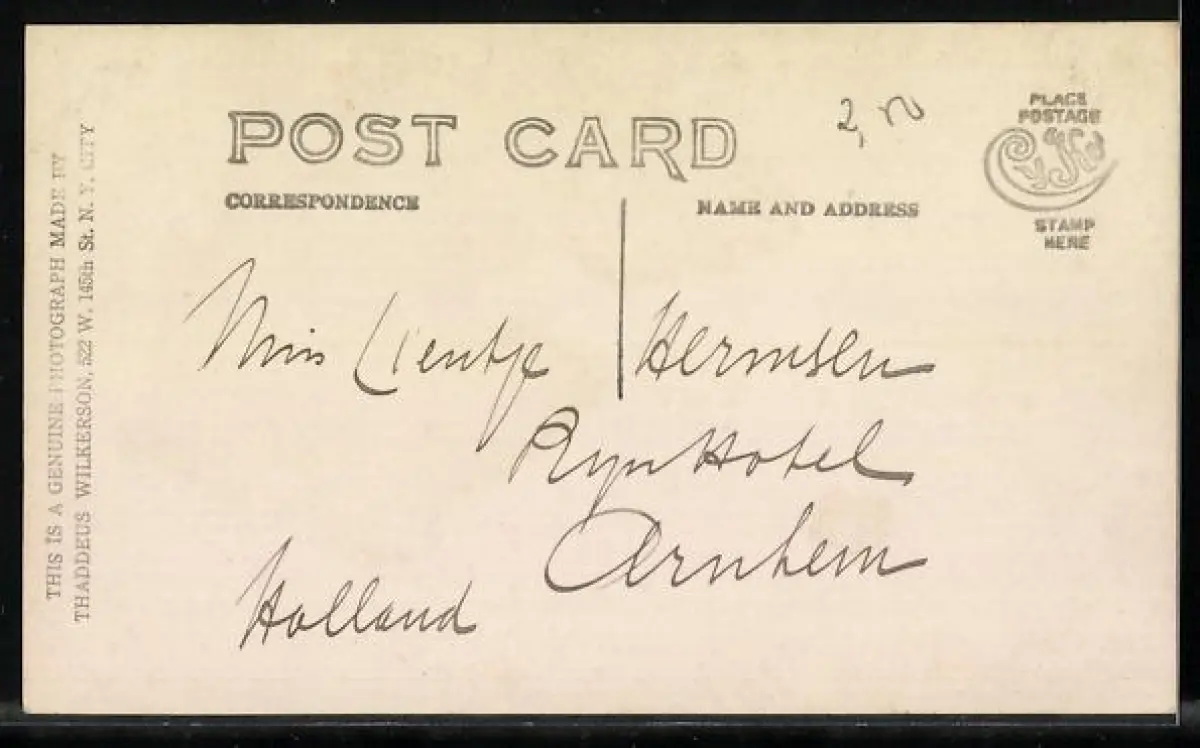 THIS IS A GENUINE PHOTOGRAPH MADE BY
THADDEUS WILKERSON, 522 W. 145th St. N. Y. CITY
POST CARD
CORRESPONDENCE
NAME AND ADDRESS
PLACE
POSTAGE
STAMP
HERE
Miss Lientje Hermsen
Ryn Hotel
Arnhem
Holland